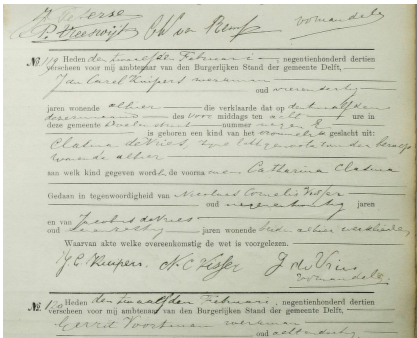 P. Vreeswijk
vomandele
No. 119 Heden den twaalfden Februari, negentienhonderd dertien
verscheen voor mij ambtenaar van den Burgerlijken Stand der gemeente Delft,
Jan Carel Kuipers
oud vierendertig
jaren wonende alhier die verklaarde dat op den twaalfden
dezer maand des voor middags ten acht ure in
deze gemeente nummer negen
is geboren een kind van het vrouwelijk geslacht uit:
Clasina de Vries, zijne echtgenoote van den beroep
wonende alhier
aan welk kind gegeven wordt de voornamen Catharina Clasina
Gedaan in tegenwoordigheid van Nicolaas Cornelis Visser
oud jaren
en van Jacobus de Vries
oud jaren wonende beiden alhier
Waarvan akte welke overeenkomstig de wet is voorgelezen.
J C Kuipers. N. C. Visser J. de Vries
vomandele
No. 120 Heden den twaalfden Februari, negentienhonderd dertien
verscheen voor mij ambtenaar van den Burgerlijken Stand der gemeente Delft,
Gerrit Voortman werkman
oud achtendertig